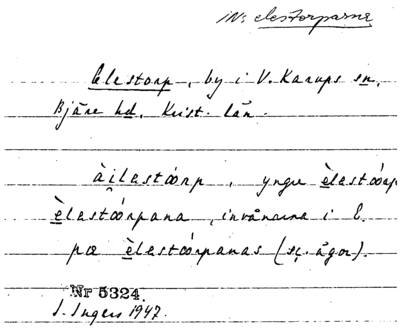 IN: elestorparna
Elestorp, by i V. Karups sn,
Bjäre hd. Krist. län.
àilastóorp, yngre èlastóorp
èlastóorpana, invånarna i E.
pœ èlastóorpanas (sc. ägor).
Nr 5324.
I. Ingers 1947.